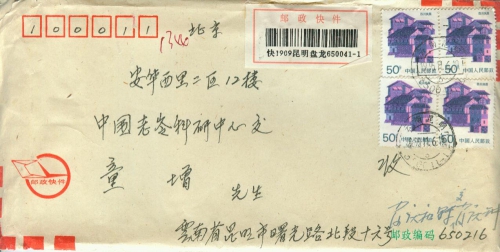 100011
北京
邮政快件
快1909昆明盘龙650041-1
安华西里二区12楼
中国老龄科研中心 交
童 先生
收
邮政快件
云南省昆明市曙光路北段十六号
邮政编码 650216
50分 中国人民邮政
50分 中国人民邮政
50分 中国人民邮政
50分 中国人民邮政